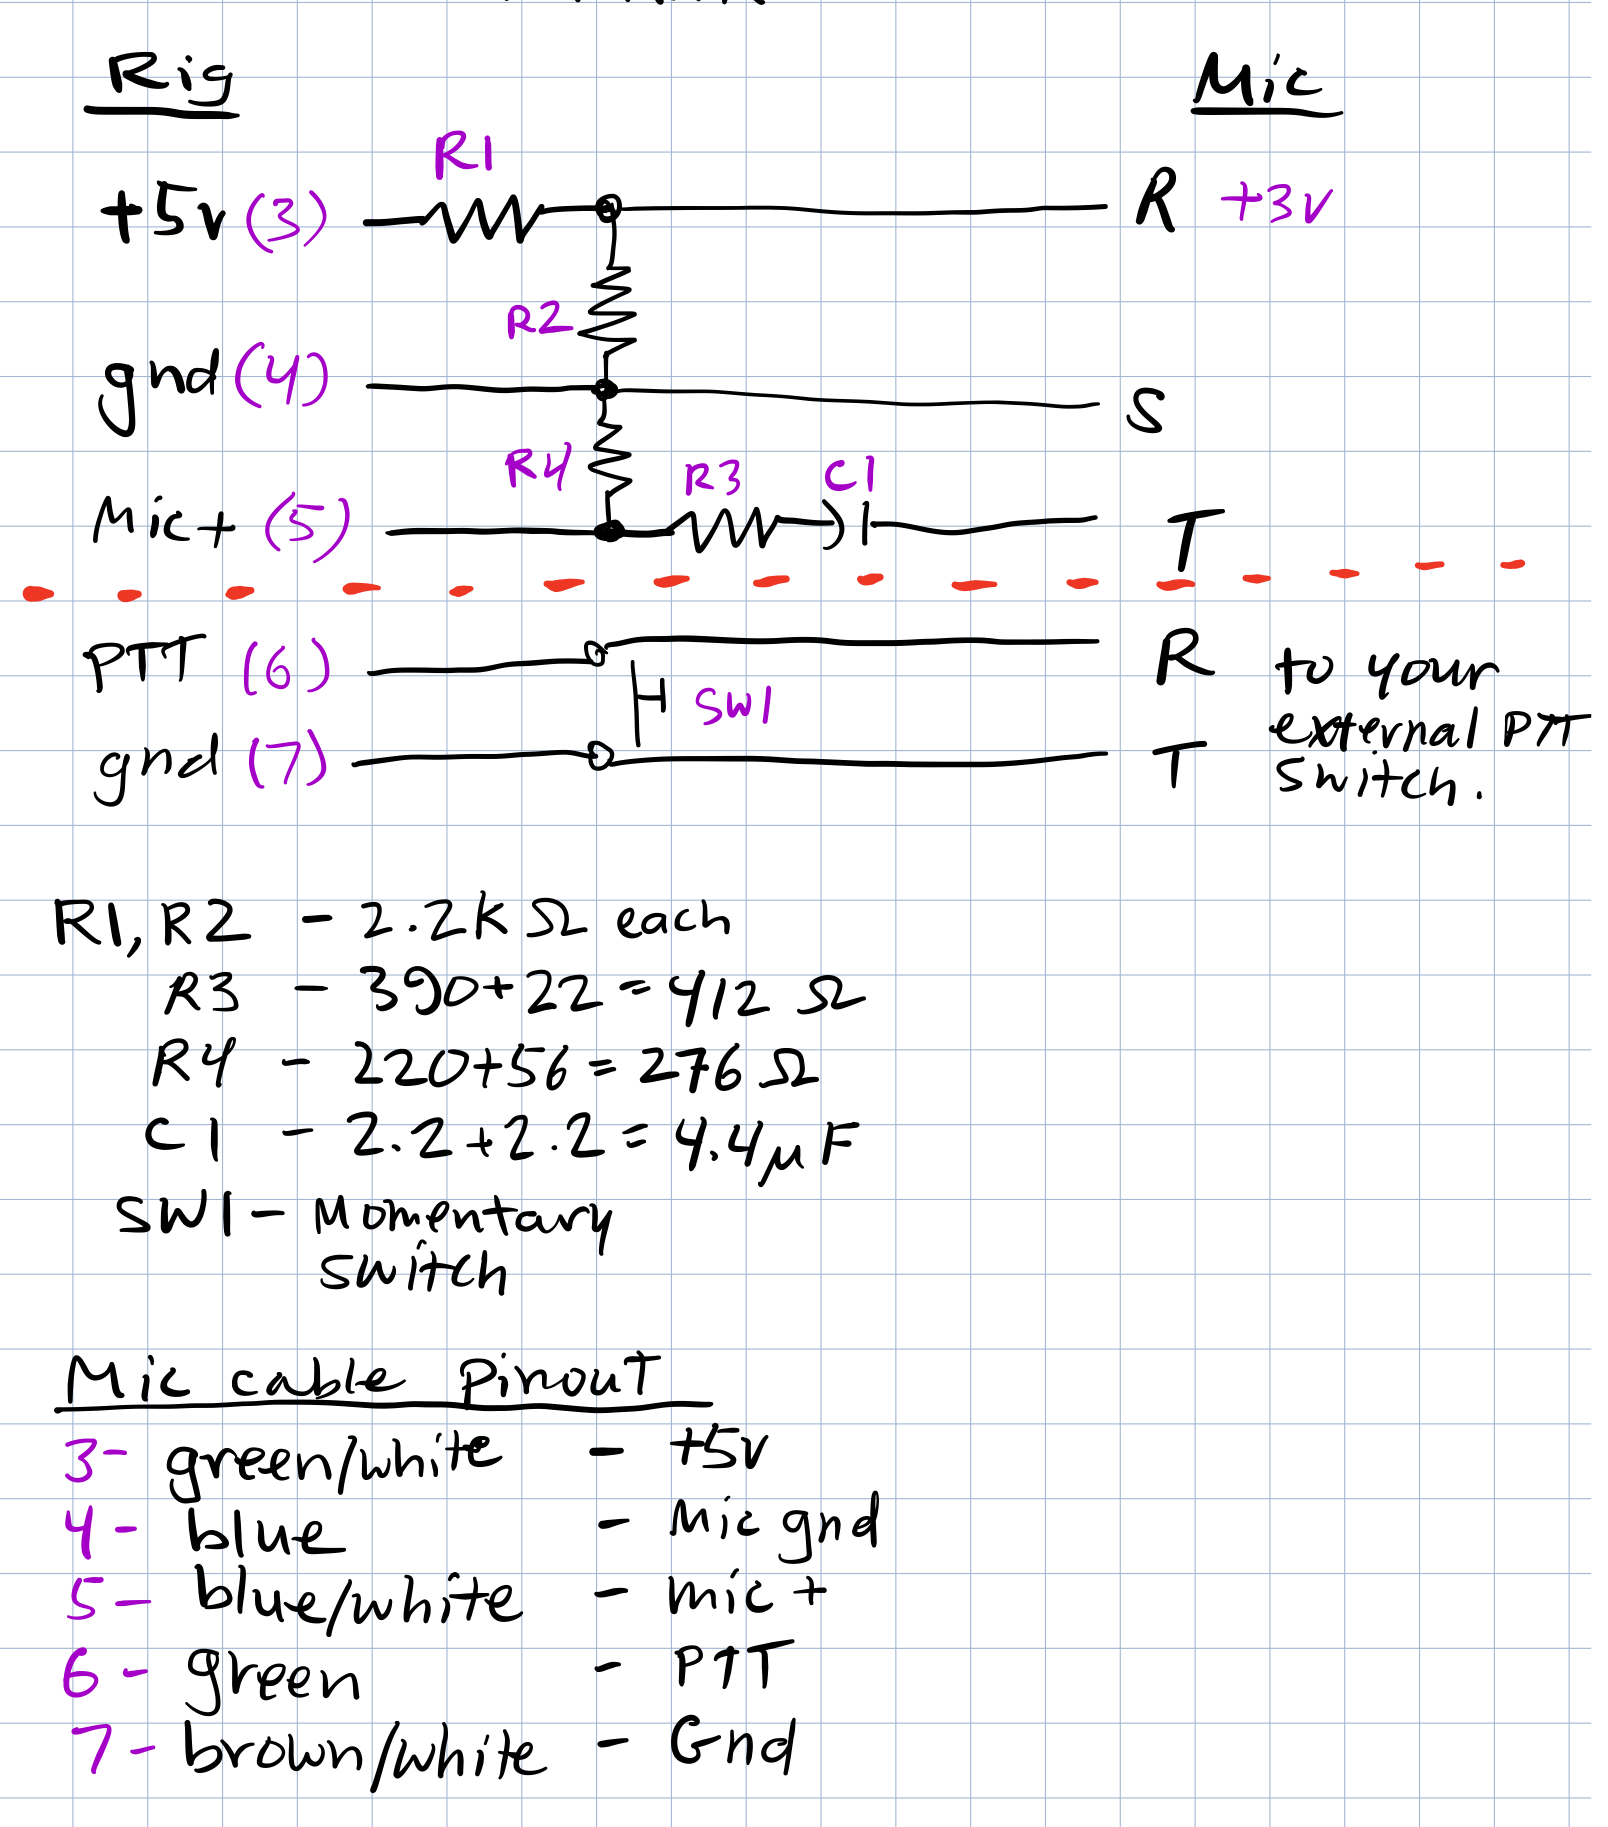 Rig Mic
R1
+5v (3) R +3v
R2
gnd (4) S
R4 R3 C1
Mic+ (5) T
PTT (6) R to your
SW1 external PTT
gnd (7) T switch.
R1, R2 - 2.2K Ω each
R3 - 390+22 = 412 Ω
R4 - 220+56 = 276 Ω
C1 - 2.2+2.2 = 4.4μF
SW1 - Momentary
switch
Mic cable pinout
3- green/white - +5v
4- blue - Mic gnd
5- blue/white - mic +
6- green - PTT
7- brown/white - Gnd